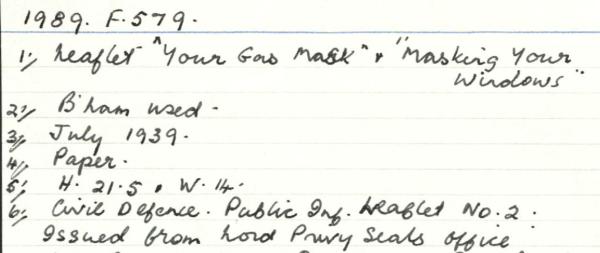 1989. F.579.
1;, Leaflet "Your Gas Mask" & "Masking Your
Windows"
2;, B'ham used.
3;, July 1939.
4;, Paper.
5;, H. 21.5, W. 14.
6;, Civil Defence. Public Inf. Leaflet No. 2.
Issued from Lord Privy Seals office